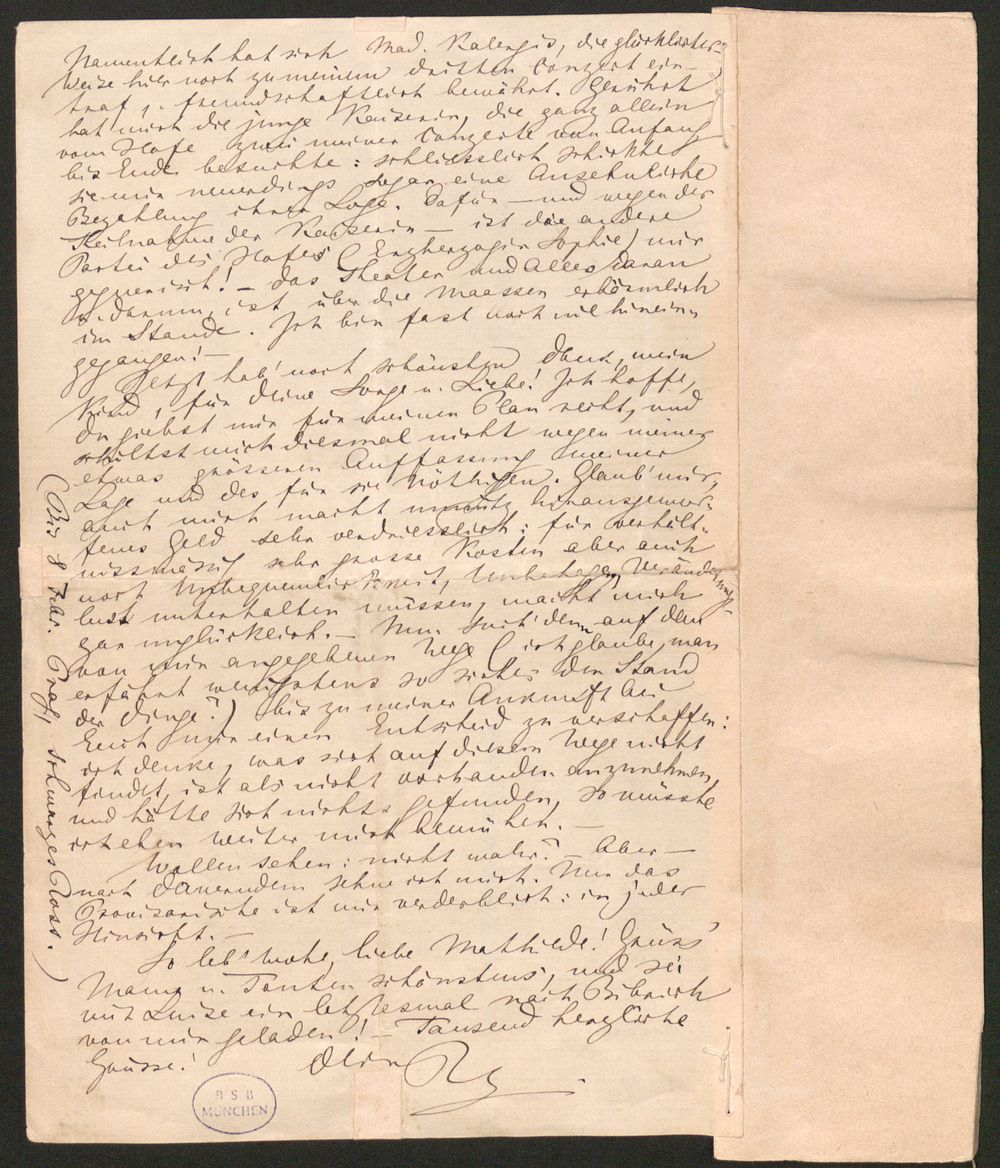 Namentlich hat sich Mad. Kalergis, die glücklicher-
weise hier noch zu meinem dritten Conzert ein-
traf, freundschaftlich bewährt. Gerührt
hat mich die junge Kaiserin, die ganz allein
vom Hofe zwei meiner Conzerte von Anfang
bis Ende besuchte: schliesslich schickte
sie mir neuerdings sogar eine ansehnliche
Bezahlung ihrer Loge. Dafür – und wegen der
Theilnahme der Kaiserin – ist die andere
Partei des Hofes (Erzherzogin Sophie) mir
gegnerisch! – Das Theater und Alles daran
u. darum, ist über die Maassen erbärmlich
im Stande. Ich bin fast noch nie hinein
gegangen! –
Jetzt hab' noch schönsten Dank, mein
Kind, für deine Sorge u. Liebe! Ich hoffe,
du giebst mir für meinen Plan recht, und
schiltst mich diesmal nicht wegen meiner
etwas grösseren Auffassung meiner
Lage und des für sie Nöthigen. Glaub' mir,
auch mich macht unnütz hinausgewor-
fenes Geld sehr verdriesslich; für verhält-
nissmässig sehr grosse Kosten aber auch
noch Unbequemlichkeit, Unbehagen, Veränderungs-
lust unterhalten müssen, macht mich
gar unglücklich. – Nun such' denn auf dem
von mir angegebenen Wege (ich glaube, man
erfährt wenigstens so sicher den Stand
der Dinge?) bis zu meiner Ankunft bei
Euch mir einen Entscheid zu verschaffen:
ich denke, was sich auf diesem Wege nicht
findet, ist als nicht vorhanden anzunehmen,
und hätte sich nichts gefunden, so müsste
ich eben weiter mich bemühen. –
Wollen sehen: nicht wahr? – Aber –
nach Dauerndem sehne ich mich. Nur das
Provisorische ist mir verderblich: in jeder
Hinsicht. –
So leb' wohl, liebe Mathilde! Grüss'
Mama u. Tanten schönstens, und sei
mit Luise ein letztesmal nach Bibrich
von mir geladen! – Tausend herzliche
Grüsse! Dein
(Bis 8 Febr. Prag, schwarzes Ross.)
B S B
MÜNCHEN